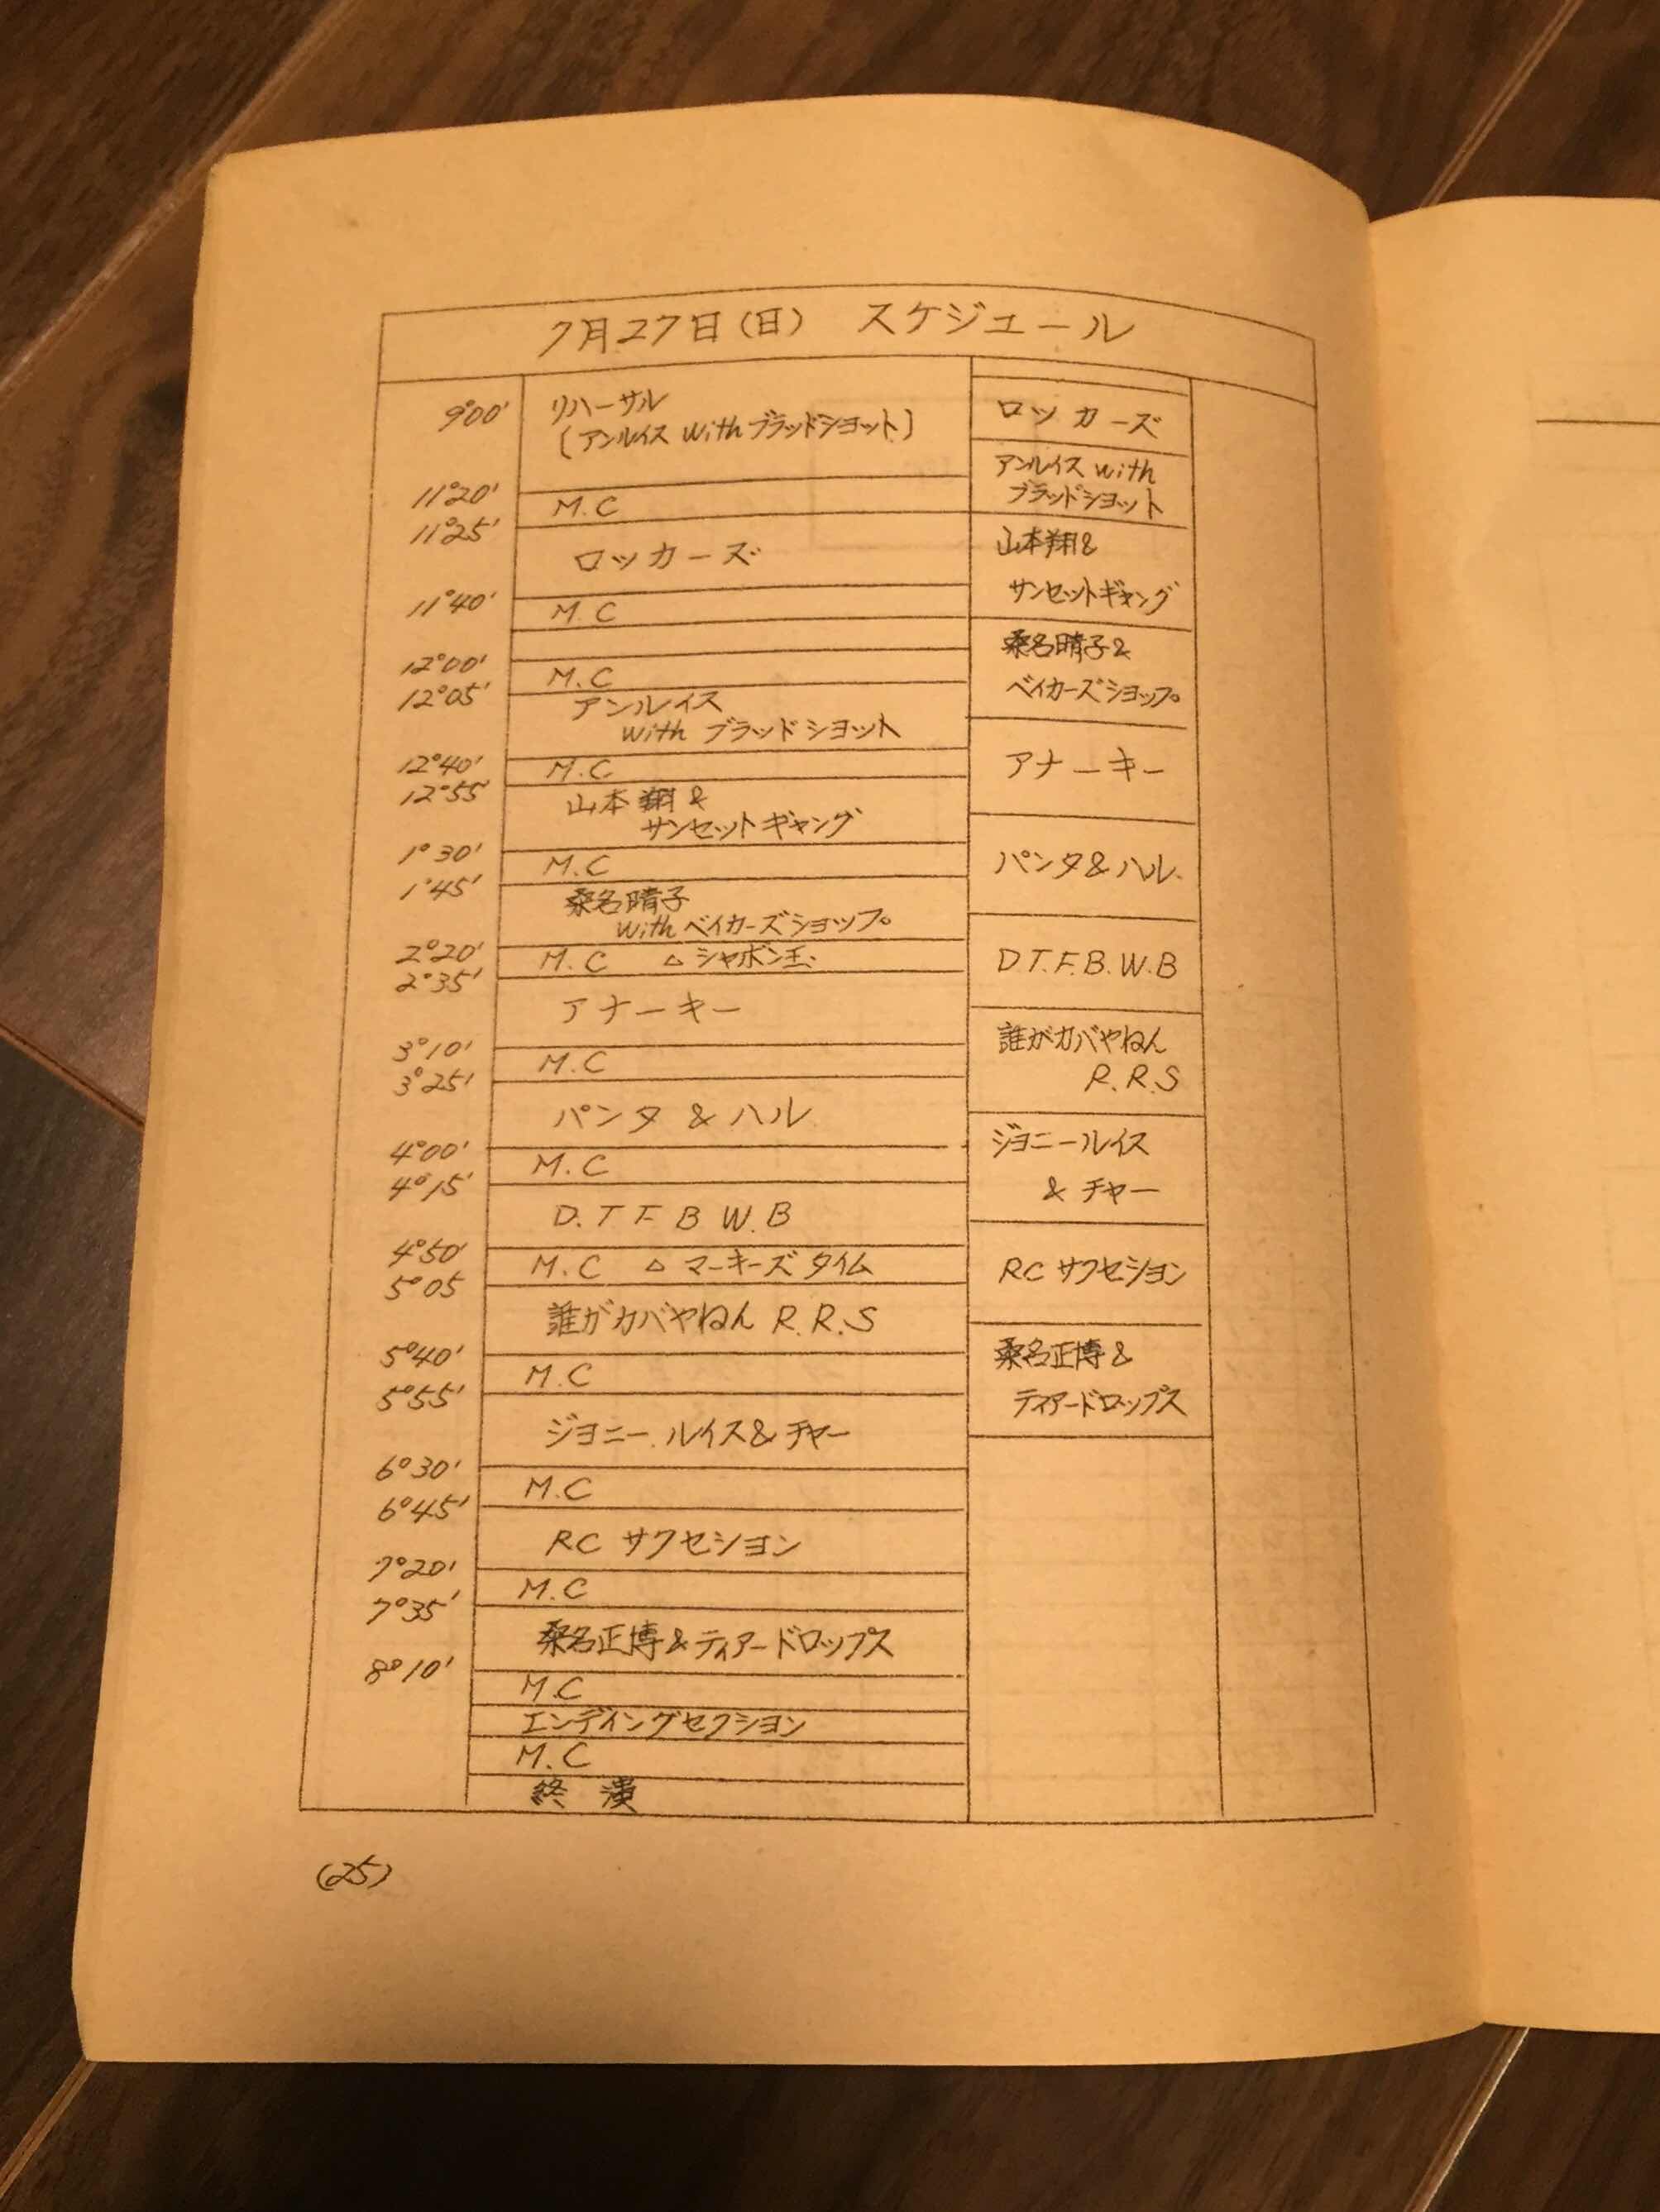 7月27日（日） スケジュール
9°00'
リハーサル
〔アンルイス withブラッドショット〕
11°20'
M.C
11°25'
ロッカーズ
11°40'
M.C
12°00'
M.C
12°05'
アンルイス
with ブラッドショット
12°40'
M.C
12°55'
山本翔&
サンセットギャング
1°30'
M.C
1°45'
桑名晴子
withベイカーズショップ。
2°20'
M.C △シャボン玉
2°35'
アナーキー
3°10'
M.C
3°25'
パンタ & ハル
4°00'
M.C
4°15'
D.T F B W.B
4°50'
M.C △マーキーズタイム
5°05
誰がカバやねん R.R.S
5°40'
M.C
5°55'
ジョニー.ルイス&チャー
6°30'
M.C
6°45'
RC サクセション
7°20'
M.C
7°35'
桑名正博&ティアードロップス
8°10'
M.C
エンディングセクション
M.C
終演
ロッカーズ
アンルイス with
ブラッドショット
山本翔&
サンセットギャング
桑名晴子&
ベイカーズショップ。
アナーキー
パンタ&ハル.
D.T.F.B.W.B
誰がカバやねん
R.R.S
ジョニールイス
& チャー
RCサクセション
桑名正博&
ティアードロップス
(25)